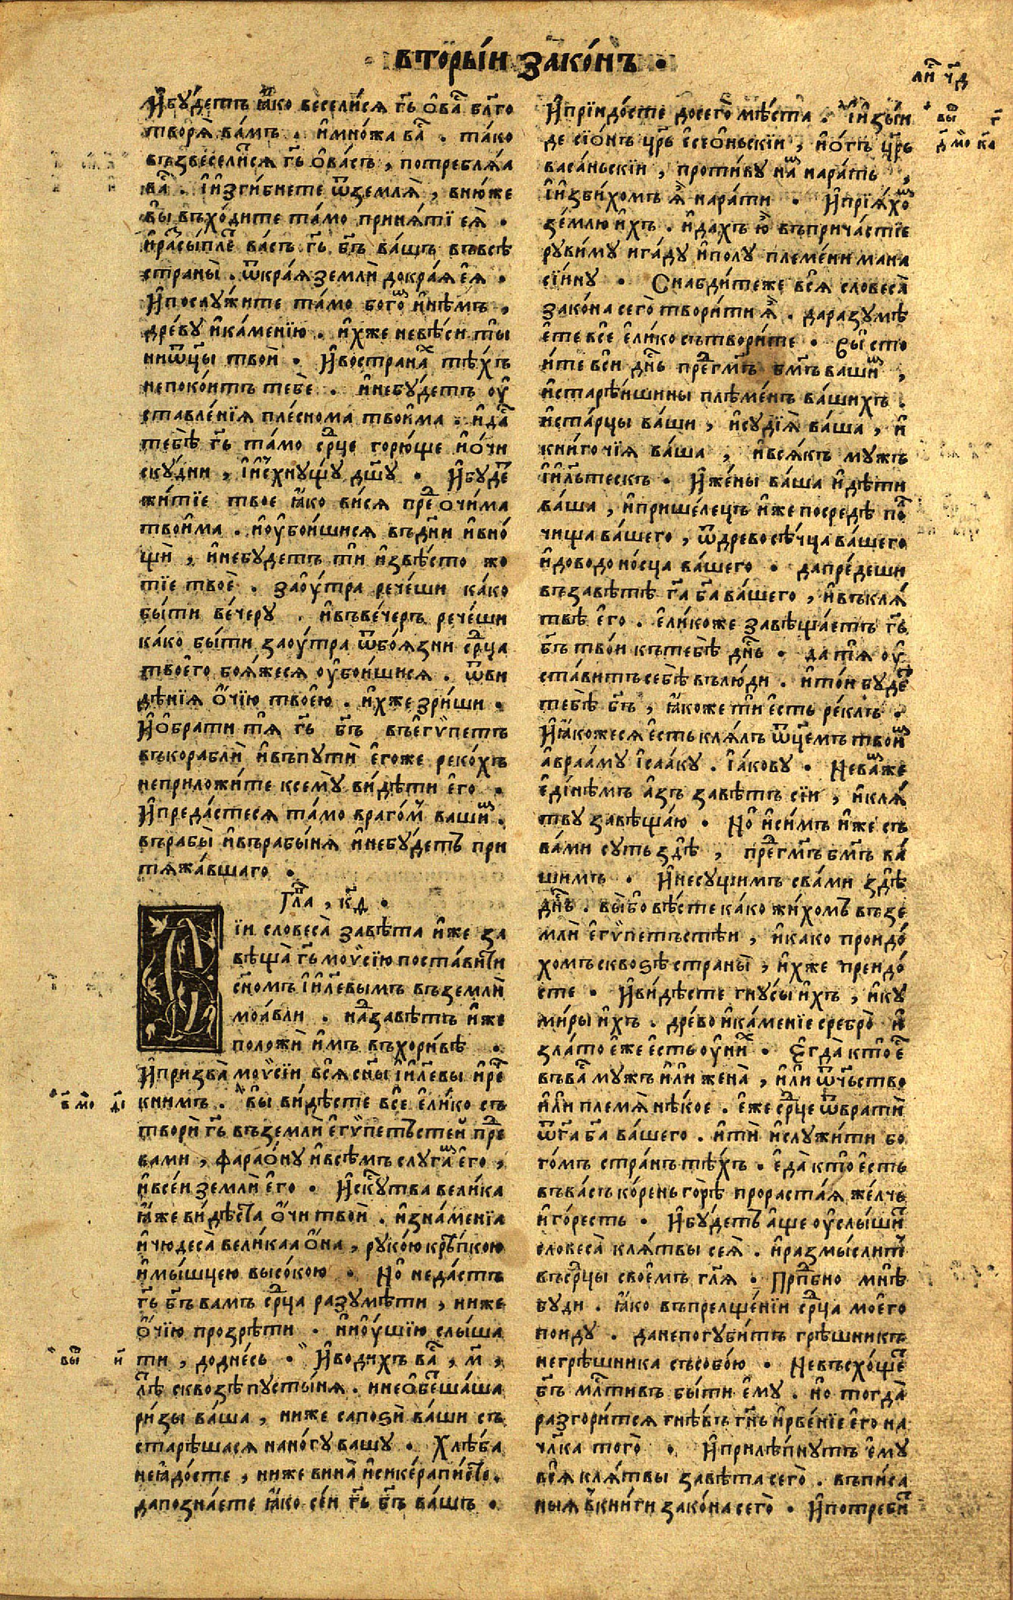 вторы́и зако́нъ ·
ли҇ ч҃д
И҆бу́детъ ꙗ҆́ко весели́сѧ гь҃ ѻ҆ва҇ бл҃го
творѧ̀ ва́мъ . и҆мно́жа ва҇ . та́ко
възвесели́сѧ гь҃ ѻ҆ва́съ , потреблѧ́ѧ
ва҇ . і҆и҆зги́бнете ѿземлѧ̀ , вню́же
вы̀ въхо́дите та́мо приѧ́ти еѧ̀ .
и҆расы́пле҇ ва́съ гь҃ бъ҃ ва́шъ въвсѣ
страны̀ . ѿкра́ѧ землѝ докра́ѧ еѧ̀ .
И҆послу́жите та́мо бого҇ и҆нѣ́мъ .
дре́ву и҆ка́менїю . и҆́хже невѣ́си ты̀
ниѿц҃ы твоѝ . И҆востра́на҇ тѣ́хъ
непоко́итъ тебѐ . и҆небу́детъ оу҆
ставле́нїѧ плесно́ма твои́ма . и҆да҇
тебѣ̀ гь҃ та́мо ср҃це горю́ще и҆о́чи
ску́дни , і҆и҆́схнущу дш҃у . И҆бу́де҇
житїѐ твоѐ ꙗ҆́ко ви́сѧ пре҇ ѻчи́ма
твои́ма . и҆оу҆бои́шисѧ въдн҃и и҆вно́
щѝ , и҆небу́детъ тѝ и҆звѣ́сто жи
тїѐ твоѐ . заоу҆́тра рече́ши ка́ко
бы́ти ве́черу . и҆въве́черъ рече́ши
ка́ко бы́ти заоу҆́тра ѿбоѧ́зни ср҃ца
твоего̀ боѧ́жесѧ оу҆бои́шисѧ . ѿви
дѣ́нїѧ ѻ҆́чїю твое́ю . и҆́хже зри́ши .
И҆ѻбрати́ тѧ гь҃ бъ҃ въегѵ́петъ
въкораблѝ и҆въпутѝ е҆го́же реко́хъ
неприложи́те ксему̀ ви́дѣти его̀ .
И҆преда́стесѧ та́мо враго҇м ва́ши҇ .
върабы̀ и҆върабы́нѧ и҆небу́детъ при
тѧжа́вшаго .
Гла҇ , к҃д .
Сїи словеса̀ завѣ́та и҆́же за
вѣща̀ гь҃ моѵ҆се́ю поста́вити
сн҃омъ і҆и҃левымъ въземлѝ
моа́вли . на҇завѣтъ и҆́же
положѝ и҆́мъ въхори́вѣ .
И҆призва̀ моѵ҆се́и всѧ̀ сн҃ы і҆и҃левы и҆ре҇
кни́мъ . вы̀ ви́дѣсте всѐ е҆ли́ко съ
творѝ гь҃ въземлѝ е҆гѵ́петьстеи пре҇
ва́ми , фараѻ́ну и҆всѣ́мъ слуга҇ е҆го̀ ,
и҆все́и землѝ е҆го̀ . И҆ску҇тва вели́ка
ꙗ҆́же ви́дѣста ѻ҆́чи твоѝ . и҆зна́менїа
и҆чюдеса̀ вели́каа ѻ҆́на , руко́ю крѣ́пкою
и҆мы́шцею высо́кою . Но̀ неда́стъ
гь҃ бъ҃ ва́мъ ср҃ца разумѣ́ти , ни́же
ѻ҆́чїю прозрѣ́ти . и҆ниоу҆́шїю слы́ша
ти , додне́сь . И҆води́хъ ва҇ , м҃ ,
лѣ҇ сквозѣ пусты́нѧ . инеѻ҆бетша́ша
ри́зы ва́ша , ни́же сапоѕѝ ва́ши съ
старѣ́шасѧ нано́гу ва́шу . Хлѣ́ба
неꙗ҆до́сте , ни́же вина̀ и҆сике́ра пи҇сте .
дапозна́ете ꙗ҆́ко се́и гь҃ бъ҃ ва́шъ .
бм҃о д҃і
вы҇ и҃
И҆прїидо́сте досего̀ мѣ́ста . і҆и҆зы́и
де сїо́нъ цр҃ь е҆сево́ньскїи , и҆о́гъ цр҃ь
васа́ньскїи , проти́ву на҇ на ра́ть ,
і҆и҆зби́хомъ ѧ҆̀ нара́ти . И҆прїѧ́хо҇
зе́млю и҆́хъ . и҆да́хъ ю҆̀ въприча́стїе
руви́му и га́ду и҆полу племе́ни мана
сїи́ну . Снабди́теже всѧ̀ словеса̀
зако́на сего̀ твори́ти ѧ҆̀ . даразумѣ́
ете всѐ е҆ли́ко сътвори́те . Вы̀ сто
и́те всѝ дн҇ь пре҇ гм҃ъ бм҃ъ ва́ши҇ ,
и҆старѣ́ишины плѣме́нъ ва́шихъ .
и҆ста́рцы ва́ши , и҆судїѧ̀ ва́ша , и҆
книго́чїѧ ва́ша , и҆всѧ́къ му́жъ
і҆и҃льтескъ . И҆же́ны ва́ша и҆дѣ́ти
ва́ша , и҆прише́лецъ и҆́же посредѣ по҇
чи́ща ва́шего , ѿдревосѣ́чца ва́шего
и҆доводоно́сца ва́шего . дапре́деши
възавѣ́тъ га҃ ба҃ ва́шего , и҆въклѧ́
твѣ е҆го̀ . е҆ли́коже завѣща́етъ гь҃
бъ҃ тво́и къ тебѣ̀ дн҇ь . да тѧ̀ оу҆
ста́витъ себѣ̀ влю́ди . и҆то́и бу́де҇
тебѣ̀ бъ҃ , ꙗ҆́коже тѝ е́сть ре́клъ .
И҆ꙗ҆́кожесѧ е҆́сть клѧ́лъ ѿц҃емъ твои҇
а҆враа́му і҆саа́ку . і҆а́кову . Нева́же
еди́нѣмъ а҆́зъ завѣ́тъ сїи , и҆клѧ́
тву завѣща́ю . Но̀ и҆си́мъ и҆́же съ
ва́ми су́ть здѣ̀ , пре҇ гм҃ъ бм҃ъ ва́
шимъ . И҆несу́щимъ сва́ми здѣ̀
дн҇ь . вы́бо вѣ́сте ка́ко жи́хомъ въ зе
млѝ е҆гѵ́петьстѣи , и҆ка́ко проидо́
хомъ сквоѕѣ̀ страны̀ , и҆́хже преидо́
сте . И҆ви́дѣсте гну́сы и҆́хъ , и҆ку
ми́ры и҆́хъ . дре́во и҆ка́менїе сребро̀ и҆
зла́то е҆́же е҆́сть оу҆ни҇ . Е҆гда̀ кто̀ е҇
въва҇ му́жъ и҆лѝ жена̀ , и҆лѝ ѿч҇ьство
и҆лѝ пле́мѧ нѣ́кое . е҆́же ср҃це ѿвратѝ
ѿга҃ ба҃ ва́шего . и҆тѝ и҆служи́ти бо
го́мъ стра́нъ тѣ́хъ . е҆да̀ кто̀ е҆́сть
въва́съ ко́рень го́рѣ прораста́ѧ же́лчь
и҆го́ресть . И҆бу́детъ а҆́ще оу҆слы́ши҇
словеса̀ клѧ́твы сеѧ̀ . и҆размы́слит
въср҃цы свое́мъ глѧ҃ . Пр҇пбно мнѣ̀
бу́ди . ꙗ҆́ко въпрелще́нїи ср҃ца моего̀
поиду . данепогуби́тъ грѣ́шникъ
негрѣ́шника съсобо́ю . Невъсхо́ще҇
бъ҃ млтивъ бы́ти е҆му̀ . но тогда̀
разгори́тсѧ гнѣ́въ гн҃ь и҆рве́нїе е҆го̀ на
чл҃ка того̀ . И҆прилѣпну́тъ е҆му̀
всѧ̀ клѧ́твы завѣ́та сего̀ . въпи́са
ныѧ вкни́ги зако́на сего̀ . И҆потреби҇
вы҇ г҃
бм҃о ка